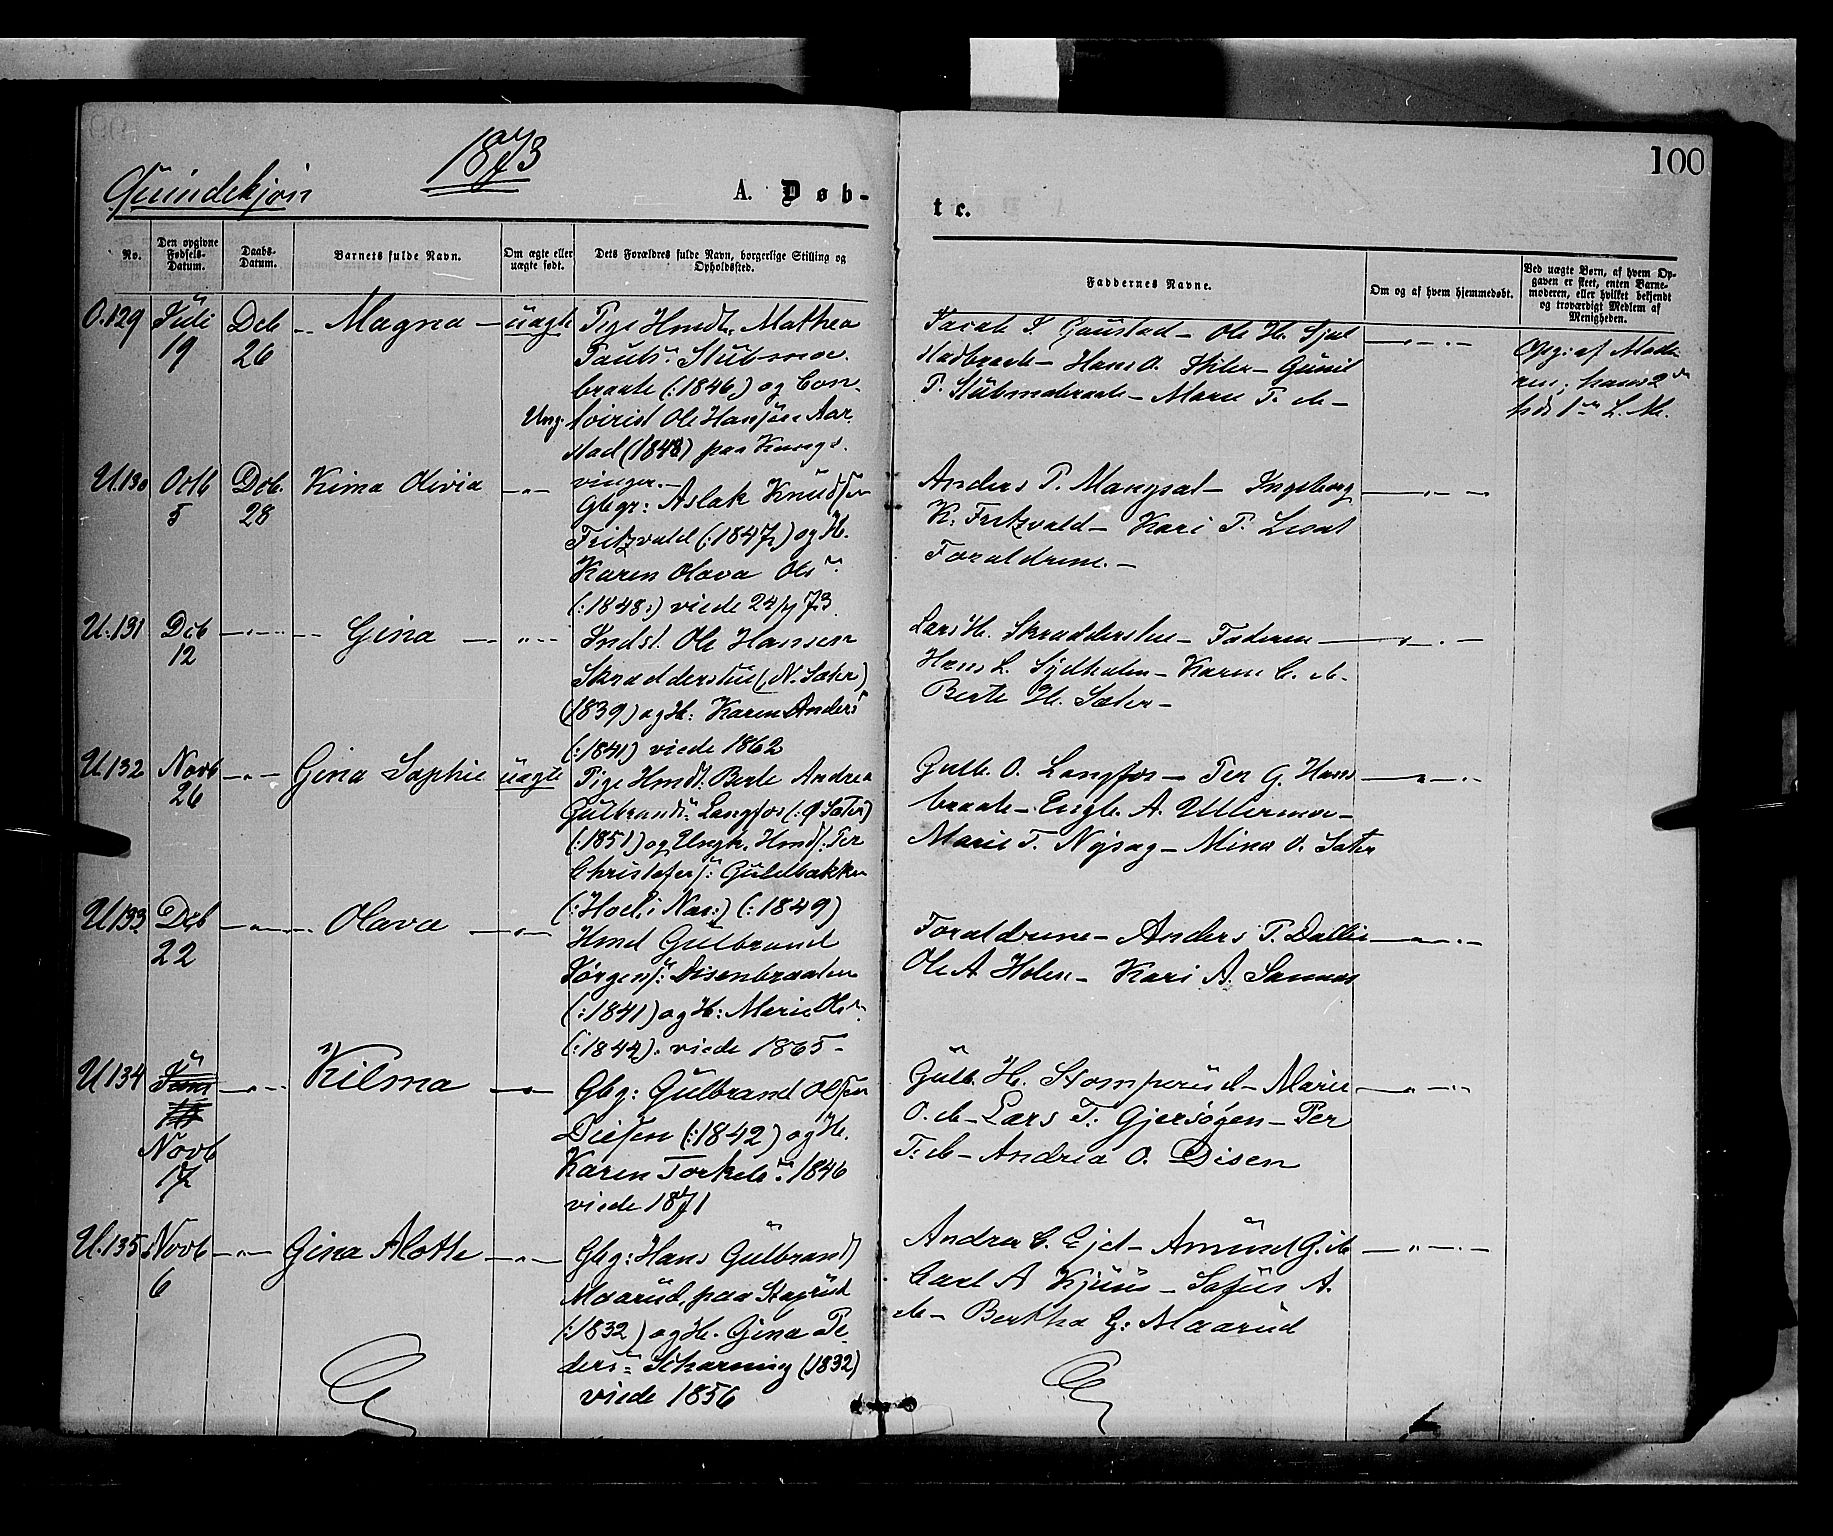 100
1873
Quindekjøn
A. Døb-
te.
No.
Den opgivne Fødsels-Datum.
Daabs-Datum.
Barnets fulde Navn.
Om ægte eller uægte født.
Dets Forældres fulde Navn, borgerlige Stilling og Opholdssted.
Faddernes Navne.
Om og af hvem hjemmedøbt.
Ved uægte Børn, af hvem Opgaven er skeet, enten Barnemoderen, eller hvilket bekjendt og troværdigt Medlem af Menigheden.
Juli 19
Deb 26
Magna
uægte
Pige Hmdt. Mathea
Pauls. Stubmoe-
braate (:1846,) og
Ung
Ole Hansen Aar-
stad (1848) paa Kongs-
vinger.
Jacob J. Gaustad - Ole H.
Hans O. - Gunil
P. Stubmobraate - Marie P. de -
Opg: af Mode-
ren; hans 2
hds 1 L. M.
U.130
Octb 5
Deb. 28
Kima Olivia
Gbgr: Aslak Knudsen
Fritzvald (:1847,) og H.
Karen Olava Ols
(:1848:) viede 73
Anders P. Mangsal - Ingeborg
K. Fritzvald - Kari P.
Forældrene. -
U.131
Deb 12
Gina
Indst. Ole Hansen
Skrædderstuen (N. Sæter)
(1839) og H: Karen Anders
(:1841) viede 1862
Lars H. Skrædderstue - Faderen -
Hans L. Sydhalen - Karen C. de -
Berte H. Sæter -
U.132
Novb 26
Gina Sophie
uægte
Pige Hmdt. Berte Andrea
Gulbrands. Langfos (:Ø Sæter)
(:1851) og Ungk. Hmd: Per
Christofers: Guldbakken
(:Hoel, i Næs:) (:1849)
Gulb. O. Langfos - Per G. Hans-
braate - Engb. A. Ullermoe -
Marie T. Nysæg - Mina O. Sæter
U.133
Deb 22
Olava
Hmd Gulbrand
Jørgens: Disenbraaten
(:1841) og H: Marie Ols
(:1844). viede 1865 -
Forældrene - Anders P. Dallie
Ole A Holen - Kari A. Samnæs
U.134
Novb 17
Kilma
Gbg: Gulbrand Olsen
Diesen (:1842) og H.
Karen Torkels. 1846
viede 1871
Gulb. H. Stomperud - Marie
O. de - Lars T. Gjersøgen - Per
T. de - Andrea O. Disen
U.135
Novb 6
Gina Alotte
Gbg: Hans Gulbrands
Maarud, paa
(:1832) og H. Gina Pe-
ders: Scharning (1832)
viede 1856
Andrea C. Ejet - Amund G. de
Carl A Kjuus - Sofus A.
de - Bertha G: Maarud